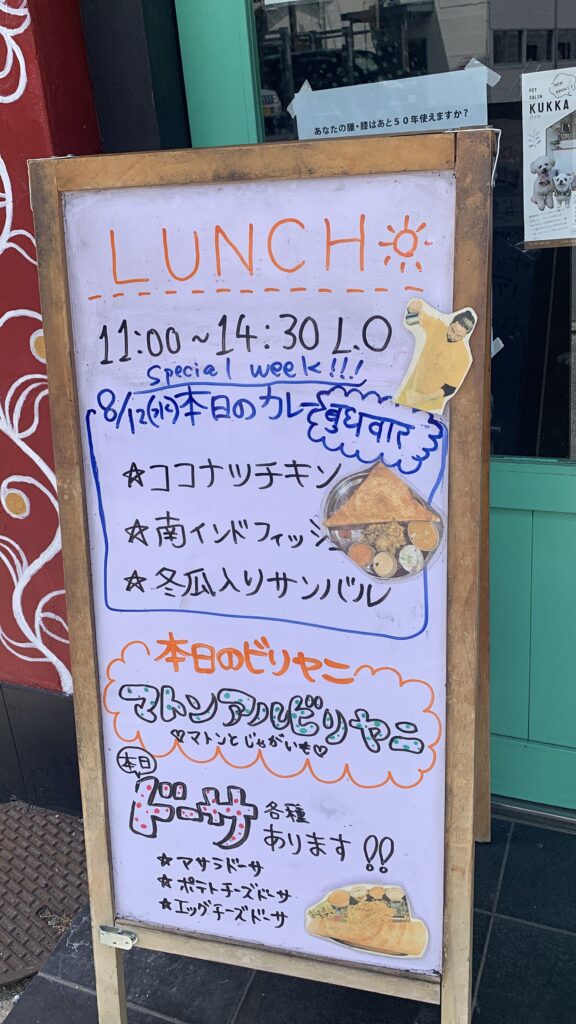 あなたの腰・膝はあと50年使えますか?
PET
SALON
KUKKA
LUNCH
11:00~14:30 L.O
Special week!!!
8/12(水)本日のカレー
बुधवार
☆ココナツチキン
☆南インドフィッシュ
☆冬瓜入りサンバル
本日のビリヤニ
マトンアルビリヤニ
♡マトンとじゃがいも♡
本日
ドーサ 各種
あります!!
☆マサラドーサ
☆ポテトチーズドーサ
☆エッグチーズドーサ